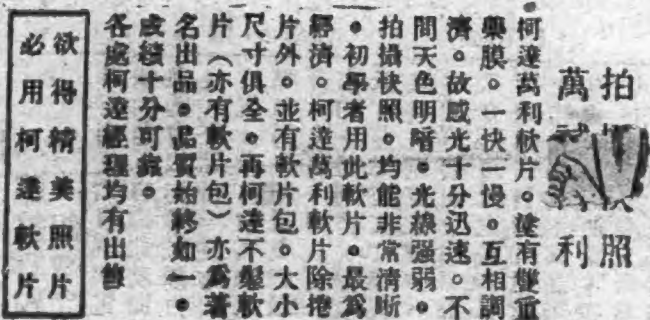 拍照
萬利
柯達萬利軟片。塗有雙重
藥膜。一快一慢。互相調
濟。故感光十分迅速。不
問天色明暗。光線强弱。
拍攝快照。均能非常清晰
。初學者用此軟片。最爲
經濟。柯達萬利軟片除捲
片外。並有軟片包。大小
尺寸俱全。再柯達不鬈軟
片（亦有軟片包）亦爲著
名出品。品質始終如一。
成績十分可靠。
各處柯達經理均有出售
欲得精美照片
必用柯達軟片